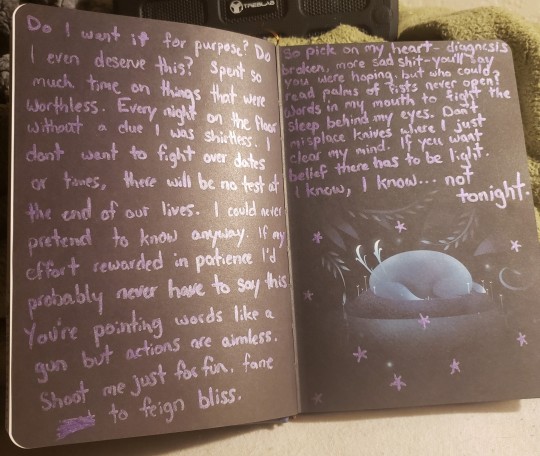 TREBLAB
Do I want it for purpose? Do
I even deserve this? Spent so
much time on things that were
worthless. Every night on the floor
without a clue I was shirtless. I
don't want to fight over dates
or times, there will be no test at
the end of our lives. I could never
pretend to know anyway. If my
effort rewarded in patience I'd
probably never have to say this
You're pointing words like a
gun but actions are aimless.
Shoot me just for fun, fane
to feign bliss.
So pick on my heart- diagnosis
broken, more sad shit-you'll say
you were hoping, but who could
read palms of fists never open?
Words in my mouth to fight the
sleep behind my eyes. Don't
misplace knives where I just
clear my mind. If you want
belief there has to be light.
I know, I know... not
tonight.